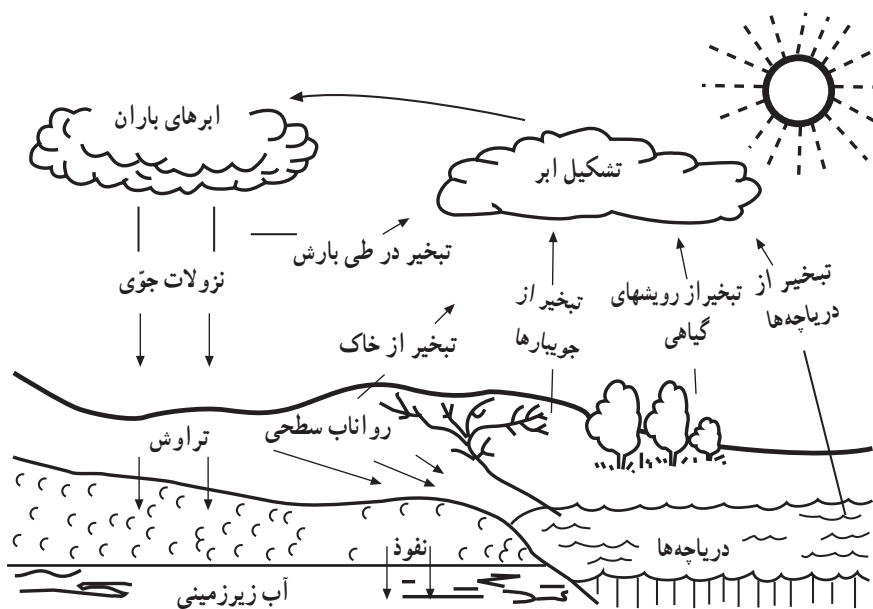 ابرهای باران
تشکیل ابر
تبخیر در طی بارش
نزولات جوّی
تبخیر از
دریاچه‌ها
تبخیر از رویشهای
گیاهی
تبخیر از
جویبارها
تبخیر از خاک
رواناب سطحی
تراوش
نفوذ
دریاچه‌ها
آب زیرزمینی